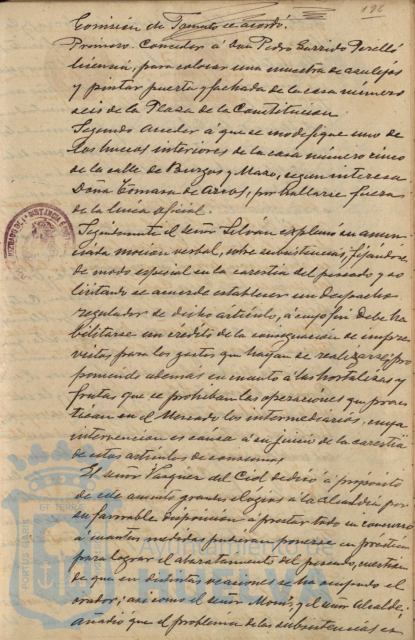 196
Comisión de Fomento se acordó.
Primero. Conceder á Don Pedro Garrido Perelló
licencia, para colocar una muestra de azulejos
y pintar puerta y fachada de la casa número
seis de la Plaza de la Constitucion.
Segundo. Acceder á que se modifique uno de
los huecos interiores de la casa número cinco
de la calle de Burgos y Mazo, segun interesa
Doña Tomasa de Arcos, por hallarse fuera
de la linea oficial.
Seguidamente el señor Selván explanó su anun-
ciada mocion verbal, sobre subsistencias, fijándose
de modo especial en la carestia del pescado y so
licitando se acuerde establecer un despacho
regulador de dicho artículo, á cuyo fin debe ha
bilitarse un crédito de la consignacion de impre
vistos para los gastos que hayan de realizarse; pro
poniendo además en cuanto á las hortalizas y
frutas que se prohiban las operaciones que prac-
tican en el Mercado los intermediarios, cuya
intervencion es causa á su juicio de la carestia
de estos artículos de consumo.
El señor Vazquez del Cid dedicó á propósito
de este asunto grandes elogios á la alcaldia por
su favorable disposicion á prestar todo su concurso
á cuantas medidas pudieran ponerse en práctica
para lograr el abaratamiento del pescado, cuestion
de que en distintas ocasiones se ha ocupado el
orador; asi como el señor Mora, y el señor Alcalde
añadió que el problema de las subsistencias es
PORTUS MARIS
ET TERRAE
Ayuntamiento de
HUELVA